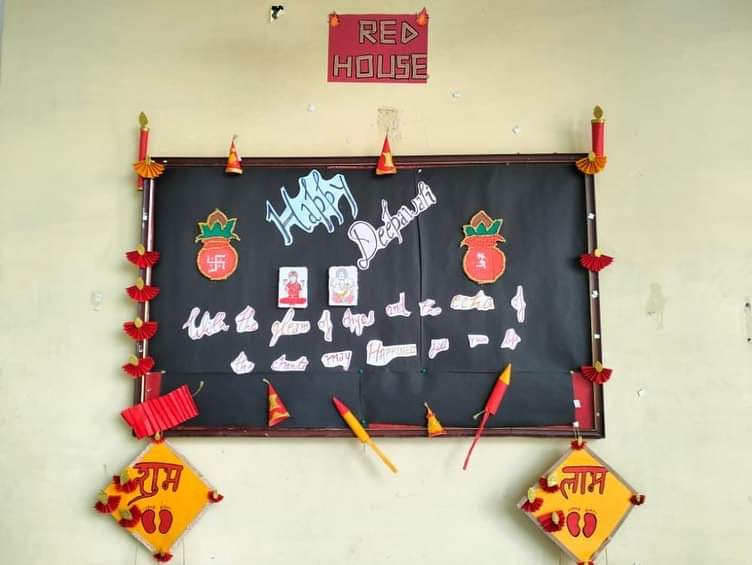 RED
HOUSE
Happy
Deepawali
With the gleam of diyas and the echo of
the chants may HAPPINESS fill your life
शुभ
लाभ